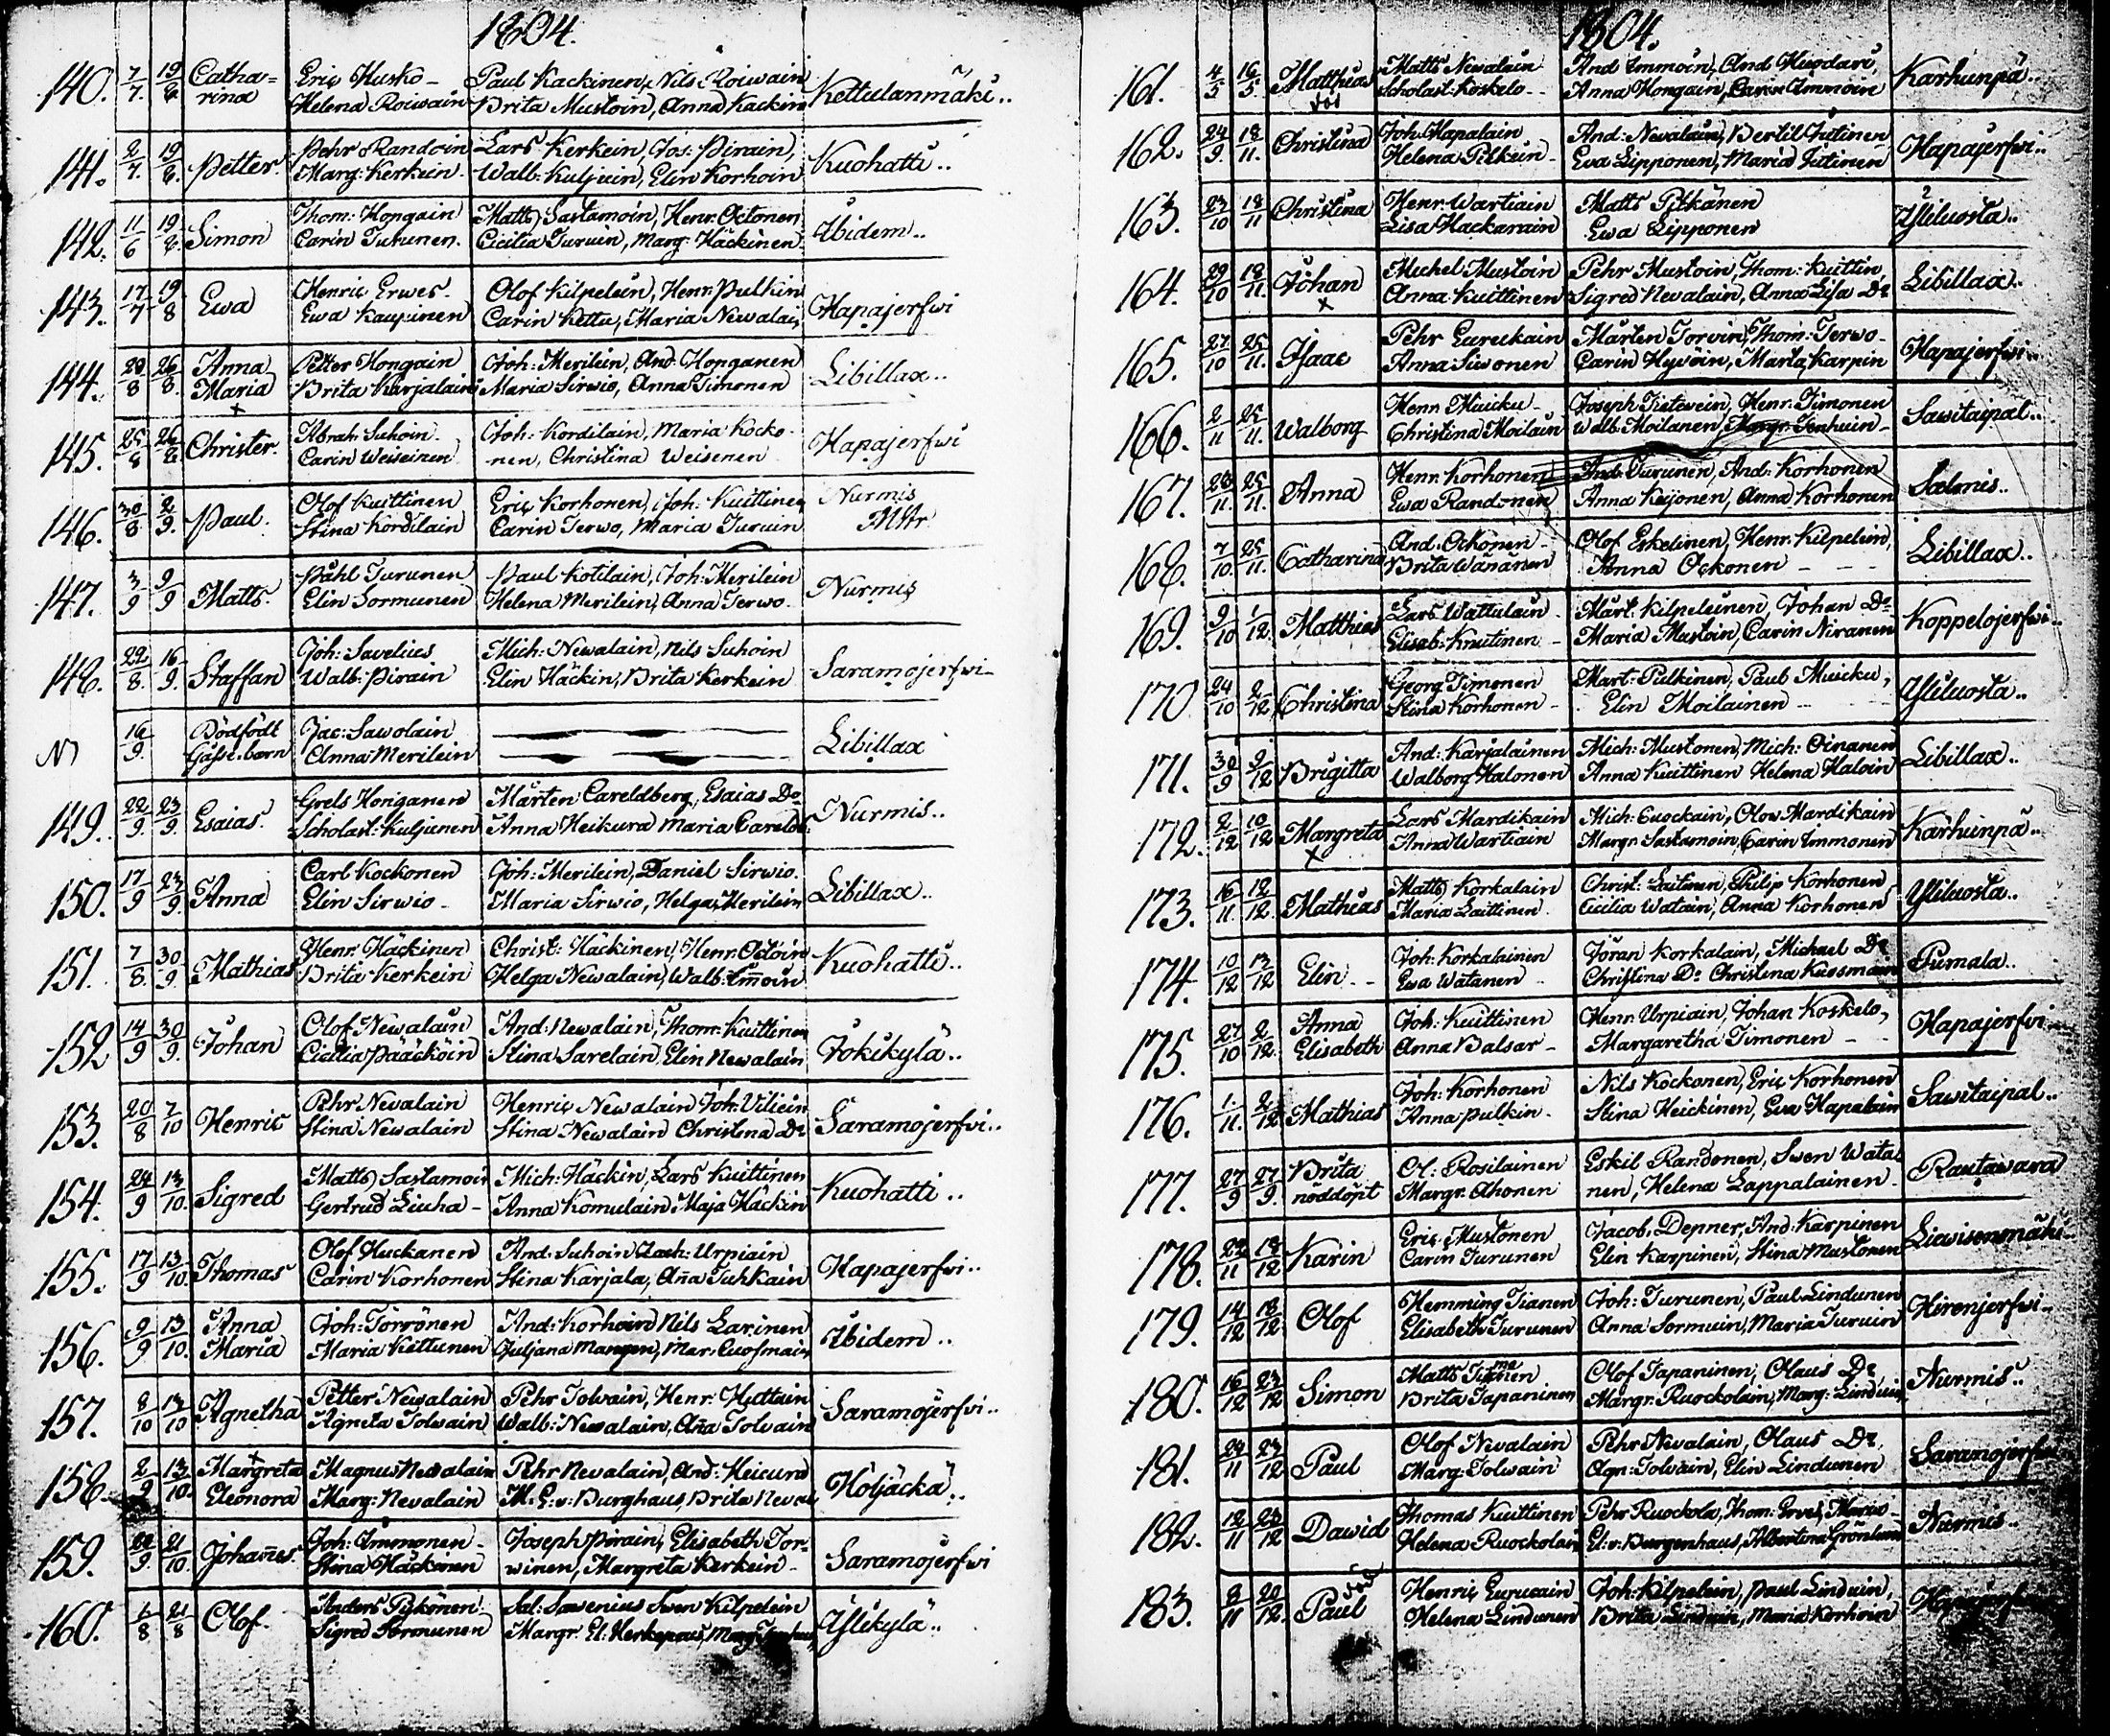 1804.
140. 7/7. 19/8 Catha= Eric Husko - Paul Kackinen, Nils Roiwain Kettulanmäki..
rina Helena Roiwain Brita Mustoin, Anna Kackin
141. 2/7. 19/8. Petter. Pehr Randoin Lars Kerkein, Jos: Pirain, Kuohatti..
Marg: Kerkein Walb: Kuljuin, Elin Korhoin
142. 11/6 19/8. Simon Thom: Hongain Matts Sastamoin, Henr. Octonen Ibidem..
Carin Turunen. Cicilia Turuin, Marg: Häckinen
143. 17/7 19/8 Ewa Henric Erwes. Olof Kilpelein, Henr: Pulkin Hapajerfwi
Ewa Kaupinen Carin Kettu, Maria Newalain
144. 20/8 26/8. Anna Petter Hongain Joh: Merilein, And: Honganen Libillax..
Maria Brita Karjalain Maria Sirwio, Anna Timonen
145. 25/8 26/8 Christer. Abrah: Suhoin. Joh: Kordilain, Maria Kocko- Hapajerfwi
Carin Weiseinen nen, Christina Weisenen
146. 30/8 2/9. Paul. Olof Kuittinen Eric Korhonen, Joh: Kuittinen Nurmis
Stina Kordilain Carin Terwo, Maria Turuin
147. 3/9 9/9 Matts. Påhl Turunen Paul Kotilain, Joh: Merilein Nurmis
Elin Sormunen Helena Merilein, Anna Terwo.
148. 22/8. 16/9. Staffan Joh: Savelius Mich: Newalain, Nils Suhoin Saramojerfwi
Walb: Pirain Elin Häckin, Brita Kerkein
N 16/9. Dödfödt Jac: Sawolain Libillax
Gåsse-barn Anna Merilein
149. 22/9. 23/9. Esaias. Grels Honganen Mårten Careldberg, Esaias Do Nurmis..
Scholast: Kuljunen Anna Heikura Maria Careldb:
150. 17/9 23/9. Anna Carl Kockonen Joh: Merilein, Daniel Sirwio. Libillax..
Elin Sirwio - Maria Sirwio, Helga Merilein
151. 7/8. 30/9. Mathias Henr: Häckinen Christ: Häckinen, Henr: Octoin Kuohatti..
Brita Kerkein Helga Newalain, Walb: Immoin
152 14/9 30/9. Johan Olof Newalain And: Newalain, Thom: Kuittinen Jokikylä..
Cicilia Pääcköin Stina Sarelain, Elin Newalain
153. 20/8 7/10 Henric Pehr Nevalain Henric Newalain Joh: Viliein Saramojerfwi..
Stina Newalain Stina Newalain Christina Do
154. 24/9 13/10. Sigred Matts Sastamoin Mich: Häckin, Lars Kuittinen Kuohatti..
Gertrud Liuha - Anna Komulain Maja Häckin
155. 17/9 13/10 Thomas Olof Huckanen And: Suhoin Zach: Urpiain Hapajerfwi..
Carin Korhonen Stina Karjala, Ana Tuhkain
156. 9/9 13/10. Anna Joh: Törrönen And: Korhoin Nils Larinen Ibidem..
Maria Maria Kettunen Juljana Mangen, Mar: Cuosmain
157. 8/10 13/10 Agnetha Petter Newalain Pehr Tolwain, Henr: Huttain Saramojerfwi..
Agneta Tolwain Walb: Newalain, Ana Tolvain
158 2/9 13/10. Margreta Magnus Newalain Pehr Nevalain, And: Heicura Höljäckä..
Eleonora Marg: Nevalain M: E: v: Burghaus, Brita Neval
159. 22/9. 21/10. Johanes. Joh: Immonen - Joseph Pirain, Elisabeth Tor- Saramojerfwi
Stina Häckinen winen, Margreta Kerkein -
160. 1/8 21/8 Olof. Anders Pykönen Sal: Sawenius Swen Kilpelein Ylikylä..
Sigred Sormunen Margr. El: Herkepaus,
1804.
161. 4/5 16/5. Matthias Matts Nevalain And Immoin, And Huodari, Karhunpä..
Scholast: Koskelo - Anna Hongain, Carin Immoin
162. 24/9. 18/11. Christina Joh: Hapalain And: Nevalain, Bertil Jutinen Hapajerfwi..
Helena Pitkein - Eva Lipponen, Maria Jutinen
163. 23/10 18/11 Christina Henr: Wartiain Matts Pitkänen Yliluosta..
Lisa Hackarain Ewa Lipponen
164. 29/10 18/11. Johan Michel Mustoin Pehr Mustoin, Thom: Kuittin Libillax..
Anna Kuittinen Sigred Nevalain, Anna Lisa Do
165. 27/10 25/11. Isaac Pehr Eurickain Mårten Torvin, Thom: Terwo - Hapajerfwi..
Anna Siwonen Carin Hyvöin, Marta Karpin
166. 2/11 25/11. Walborg Henr. Muicku - Joseph Tietewein, Henr: Timonen Sawitaipal..
Christina Moilain Walb: Moilanen, Margr: Tenhuin -
167. 23/11. 25/11. Anna Henr. Korhonen And: Turunen, And: Korhonen Salmis..
Ewa Randonen Anna Keijonen, Anna Korhonen
168. 7/10. 25/11. Catharina And: Ockonen - Olof Eskelinen, Henr: Kilpelein, Libillax..
Brita Wänänen Anna Ockonen - - -
169. 9/10 1/12. Matthias Lars Wattulain Mårt: Kilpeleinen, Johan Do Koppelojerfwi..
Elisab: Knutinen - Maria Mustoin, Carin Niranen
170 24/10 2/12 Christina Georg Timonen Mårt: Pulkinen, Paul Muicku, Yliluosta..
Stina Korhonen - Elin Moilainen -
171. 30/9 9/12 Brigitta And: Karjalainen Mich: Mustonen, Mich: Oinanen Libillax..
Walborg Halonen Anna Kuittinen Helena Haloin
172. 2/12 10/12 Margreta Lars Mardikain Mich: Cuockain, Olow Mardikain Karhunpä..
Anna Wartiain Margr: Sastamoin, Carin Immonen
173. 16/11. 12/12. Mathias Matts Korkalain Christ: Laitinen, Philip Korhonen Yliluosta..
Maria Laittinen. Cicilia Watain, Anna Korhonen
174. 10/12 13/12 Elin - - Joh: Korkalainen Jöran Korkalain, Michael Do Pumala..
Ewa Watanen Christina Do Christina Kuosmain
175. 27/10 2/12. Anna Joh: Kuittinen Henr: Urpiain, Johan Koskelo, Hapajerfwi..
Elisabeth Anna Balsar - Margaretha Timonen -
176. 1/11. 2/12 Mathias Joh: Korhonen Nils Kockonen, Eric Korhonen Sawitaipal..
Anna Pulkin. Stina Heickinen, Eva Hapalain
177. 27/9 27/9. Brita Ol: Rosilainen Eskil Randonen, Swen Wata Rautawara
nöddöpt Margr: Ahonen nen, Helena Lappalainen -
178. 22/11 18/12 Karin Eric Mustonen Jacob Depner, And: Karpinen Liewisenmäki..
Carin Turunen Elin Karpinen, Stina Mustonen
179. 14/12 18/12 Olof Hemming Tianen Joh: Turunen, Paul Lindunen Hirenjerfwi..
Elisabeth Turunen Anna Sormuin, Maria Turuin
180. 16/12 23/12 Simon Matts Olof Tapaninen, Olaus Do Nurmis..
Brita Tapaninen Margr: Ruockolain, Marg: Linduin
181. 24/11 23/12 Paul Olof Nevalain Pehr Nevalain, Olaus Do, Saramojerfwi
Marg: Tolwain Agn: Tolvain, Elin Lindunen
182. 12/11 23/12 Dawid Thomas Kuittinen Pehr Ruockola, Thom: Erves, Maria Nurmis..
Helena Ruockolain El: v: Burgenhaus, Albertina Grönlund
183. 8/11 20/12. Paul Henric Euricain Joh: Kilpelein, Paul Linduin,
Helena Lindunen Brita Linduin, Maria Korhoin